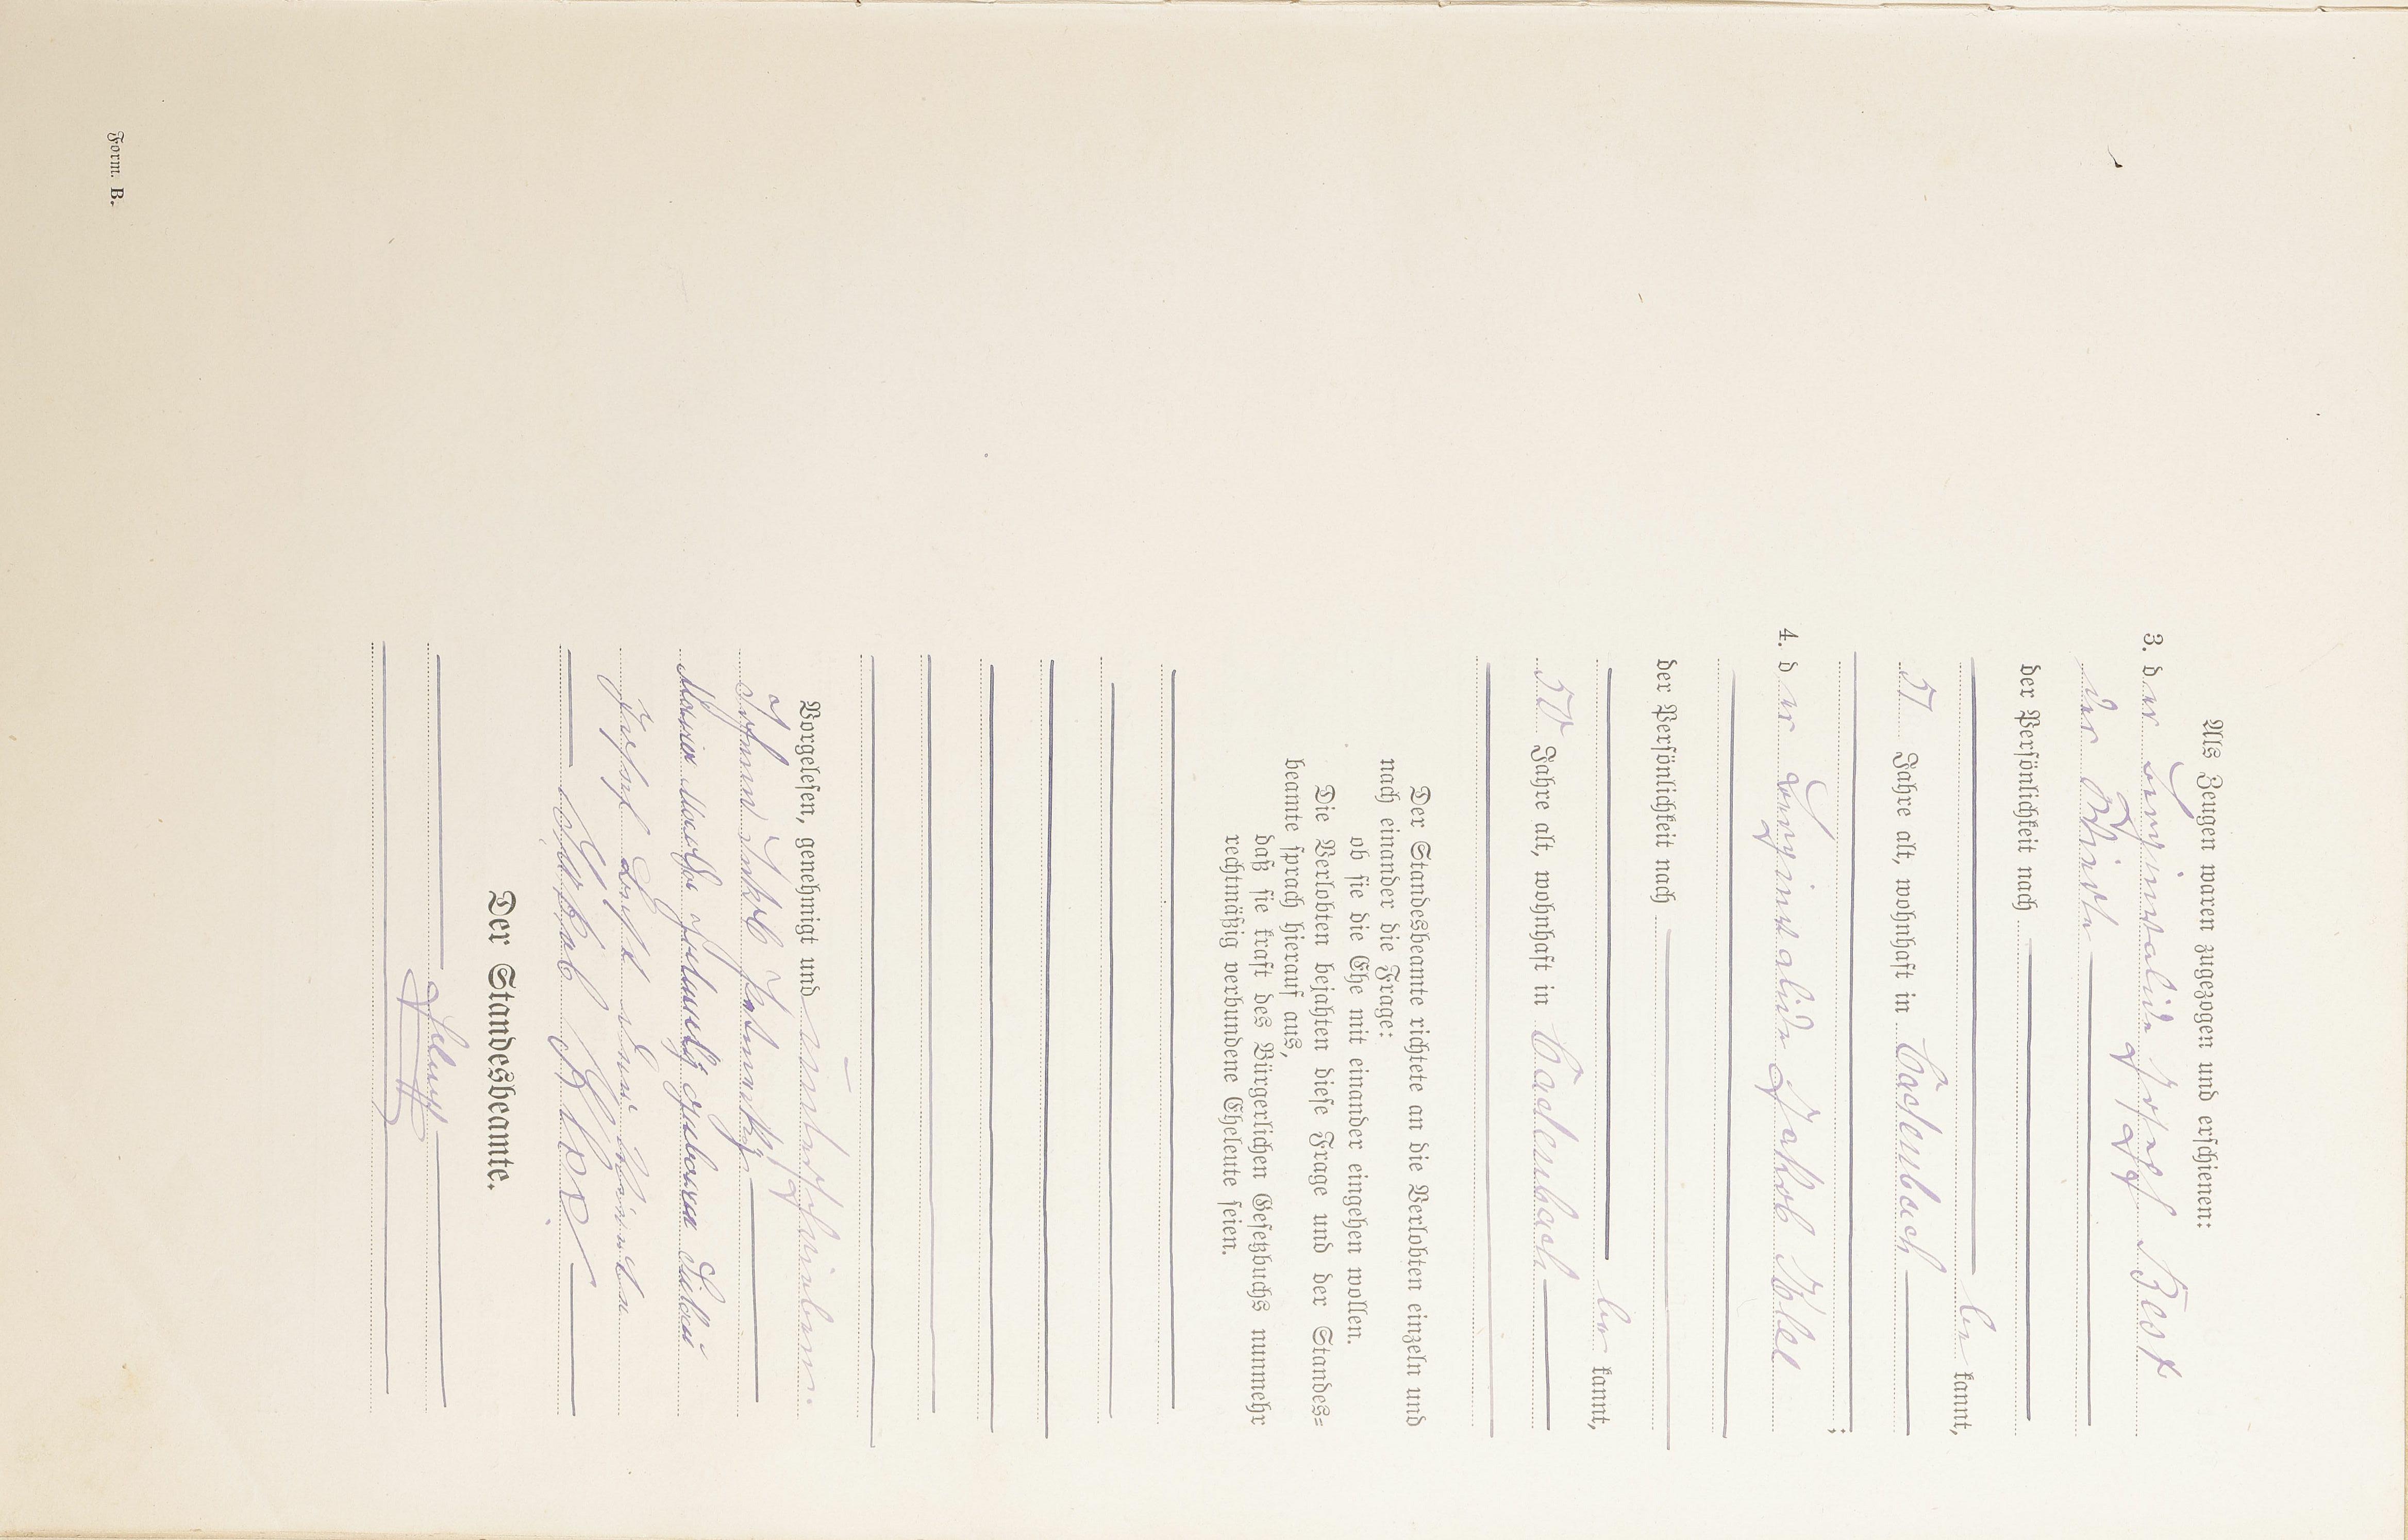 Als Zeugen waren zugezogen und erschienen:
3. der Berginvalide Josef Best
der Wirth
der Persönlichkeit nach
be kannt,
57 Jahre alt, wohnhaft in Cadenbach
4. der Berginvalide Jakob
;
der Persönlichkeit nach
be kannt,
50 Jahre alt, wohnhaft in Cadenbach
Der Standesbeamte richtete an die Verlobten einzeln und
nach einander die Frage:
ob sie die Ehe mit einander eingehen wollen.
Die Verlobten bejahten diese Frage und der Standes=
beamte sprach hierauf aus,
daß sie kraft des Bürgerlichen Gesetzbuchs nunmehr
rechtmäßig verbundene Eheleute seien.
Vorgelesen, genehmigt und unterschrieben.
Johann Jakob
Maria geborene
Josef Best
Jakob
Der Standesbeamte.
Form. B.